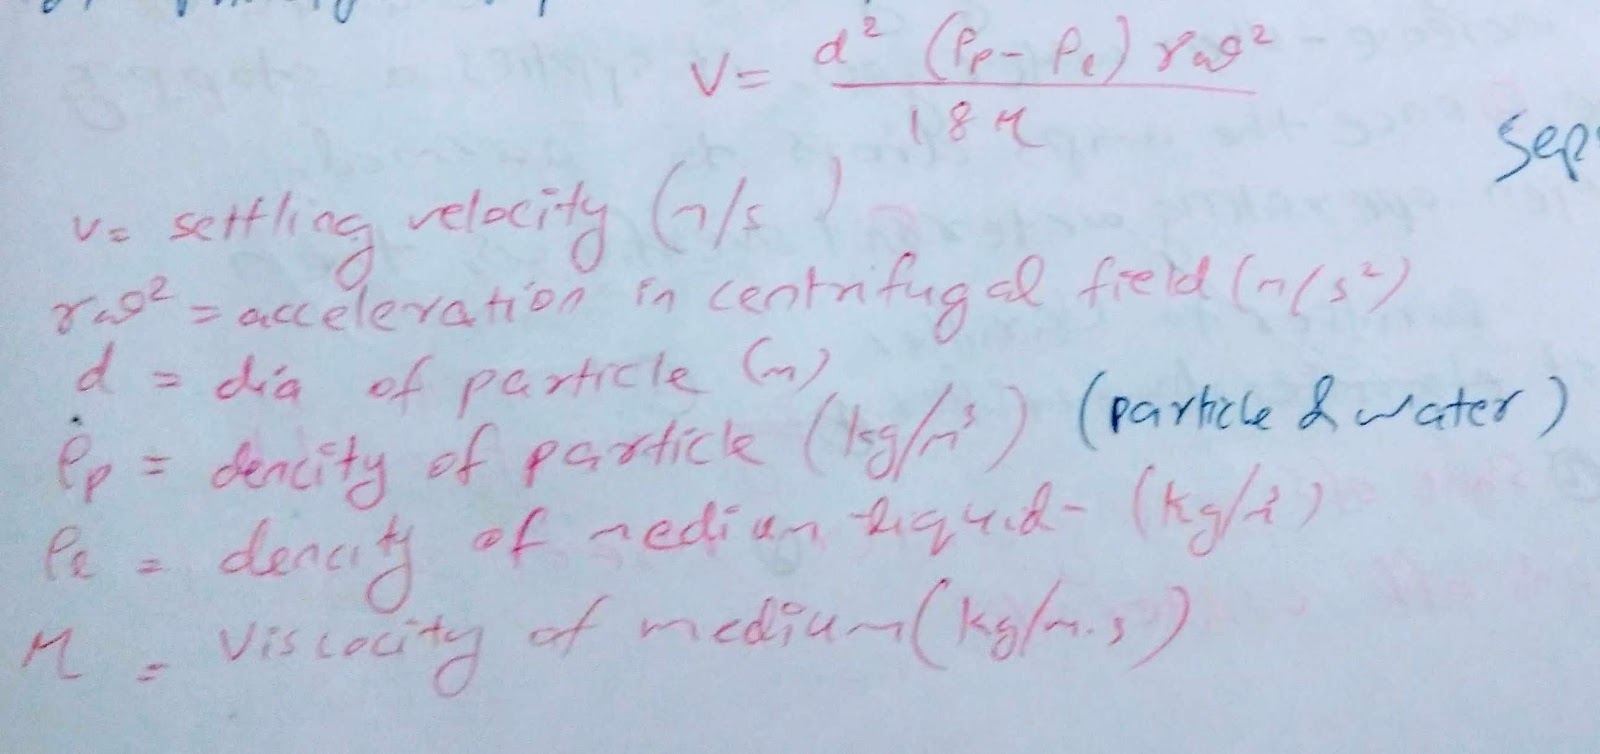 V = d² (ρp - ρl) rω²
18 μ
Sep
v = settling velocity (m/s)
rω² = acceleration in centrifugal field (m/s²)
d = dia of particle (m)
ρp = dencity of particle (kg/m³) (particle & water)
ρl = dencity of medium liquid - (kg/
μ = Viscocity of medium (kg/m.s)